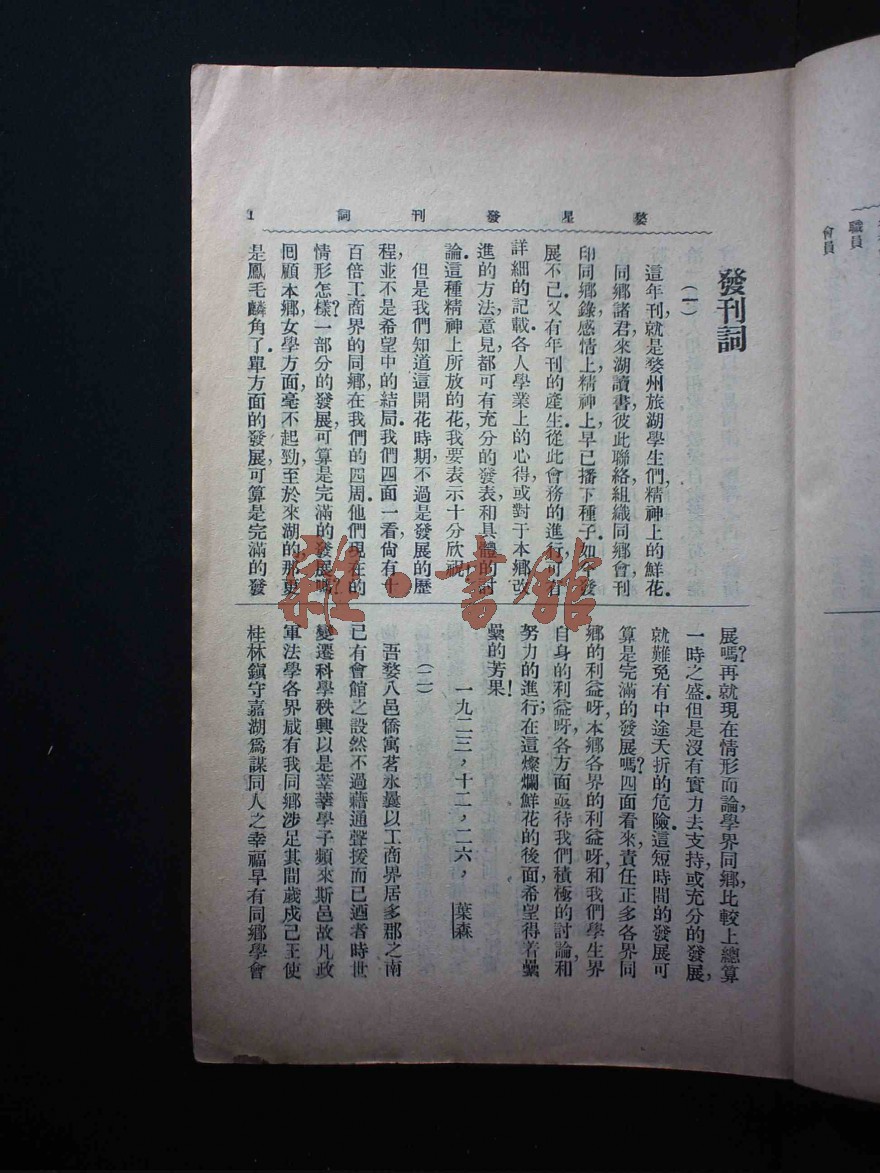 婺星發刊詞 1
發刊詞
(一)
這年刊，就是婺州旅湖學生們，精神上的鮮花．
同鄉諸君來湖讀書彼此聯絡組織同鄉會刊
印同鄉錄感情上精神上早已播下種子．如今發
展不已．又有年刊的產生從此會務的進行，可有
詳細的記載．各人學業上的心得，或對于本鄉改
進的方法，意見，都可有充分的發表和具體的討
論．這種精神上所放的花，我要表示十分欣祝．
但是我們知道這開花時期，不過是發展的歷
程，並不是希望中的結局．我們四面一看，尙有十
百倍工商界的同鄉，在我們的四周．他們現在的
情形怎樣？一部分的發展，可算是完滿的發展嗎？
囘顧本鄉，女學方面，毫不起勁，至於來湖的，那更
是鳳毛麟角了．單方面的發展，可算是完滿的發
展嗎？再就現在情形而論，學界同鄉，比較上總算
一時之盛．但是沒有實力去支持，或充分的發展，
就難免有中途夭折的危險．這短時間的發展可
算是完滿的發展嗎？四面看來，責任正多．各界同
鄉的利益呀，本鄉各界的利益呀，和我們學生界
自身的利益呀，各方面亟待我們積極的討論，和
努力的進行；在這燦爛鮮花的後面，希望得着纍
纍的芳果！
一九二三，十二，二六，葉森
(二)
吾婺八邑僑寓茗水曩以工商界居多郡之南
已有會館之設然不過藉通聲援而已迺者時世
變遷科學秩興以是莘莘學子頻來斯邑故凡政
軍法學各界咸有我同鄉涉足其間歲戍己王使
桂林鎭守嘉湖爲謀同人之幸福早有同鄉學會
職員
會員
雜·書館